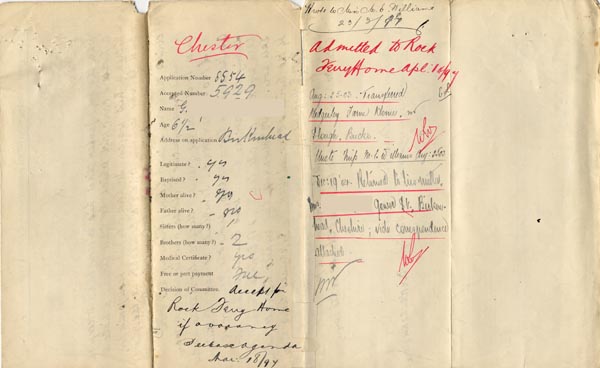 Chester
Application Number 5554
Accepted Number 5929
Name G.
Age 6½
Address on application Birkenhead
Legitimate? yes
Baptised? yes
Mother alive?
Father alive? no
Sisters (how many?)
Brothers (how many?) 2
Medical Certificate? yes
Free or part payment Free
Decision of Committee. Accept for
Rock Ferry Home
if a vacancy
See case agenda
Mar. 18/97
Wrote to Miss M. C. Williams
23/3/97
Admitted to Rock
Ferry Home Apl. 10/97
Aug: 25·03. Transferred
Hedgerley Farm Home, nr
Slough, Bucks.
Wrote Miss M. C. Williams Aug: 25/03
Dec: 19' 04. Returned to his mother,
Mrs. Rd. Birken-
head, Cheshire; vide correspondence
attached.